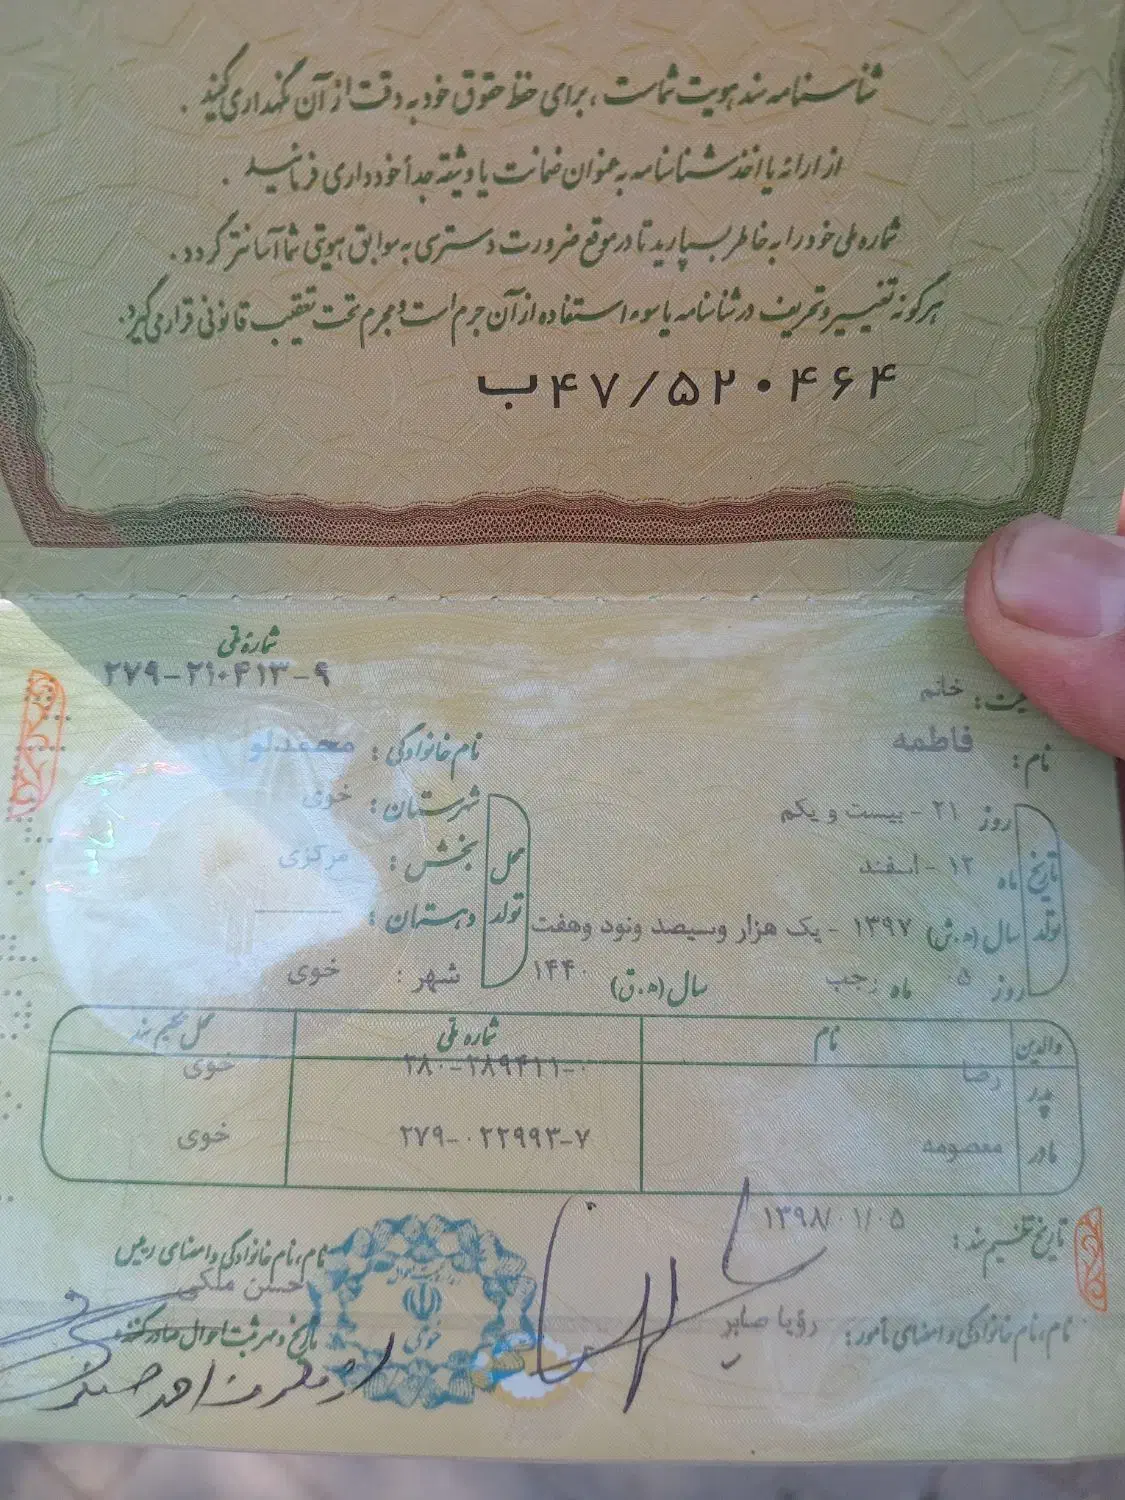 شناسنامه سند هویت شماست ، برای حفظ حقوق خود به دقت از آن نگهداری کنید .
از ارائه یا اخذ شناسنامه به عنوان ضمانت یا وثیقه جداً خودداری فرمائید .
شماره ملی خود را به خاطر بسپارید تا در موقع ضرورت دسترسی به سوابق هویتی شما آسانتر گردد .
هرگونه تغییر و تحریف در شناسنامه یا سوء استفاده از آن جرم است و مجرم تحت تعقیب قانونی قرار می گیرد .
ب۴۷/۵۲۰۴۶۴
شماره ملی
۲۷۹-۲۱۰۴۱۳-۹
خانم
نام : فاطمه
نام خانوادگی : محمدلو
تاریخ تولد
روز ۲۱ - بیست و یکم
ماه ۱۲ - اسفند
سال (ه.ش) ۱۳۹۷ - یک هزار و سیصد و نود و هفت
روز ۵ ماه رجب سال (ه.ق) ۱۴۴۰
محل تولد
شهرستان : خوی
بخش : مرکزی
دهستان :
شهر : خوی
والدین نام شماره ملی محل تنظیم سند
پدر رضا ۲۸۰-۲۸۹۴۱۱-۰ خوی
مادر معصومه ۲۷۹-۰۲۲۹۹۳-۷ خوی
تاریخ تنظیم سند : ۱۳۹۸/۰۱/۰۵
نام، نام خانوادگی و امضای مامور: رؤیا صابر
نام، نام خانوادگی و امضای رییس
حسن ملکی
تاریخ و مهر ثبت احوال صادرکننده:
خوی